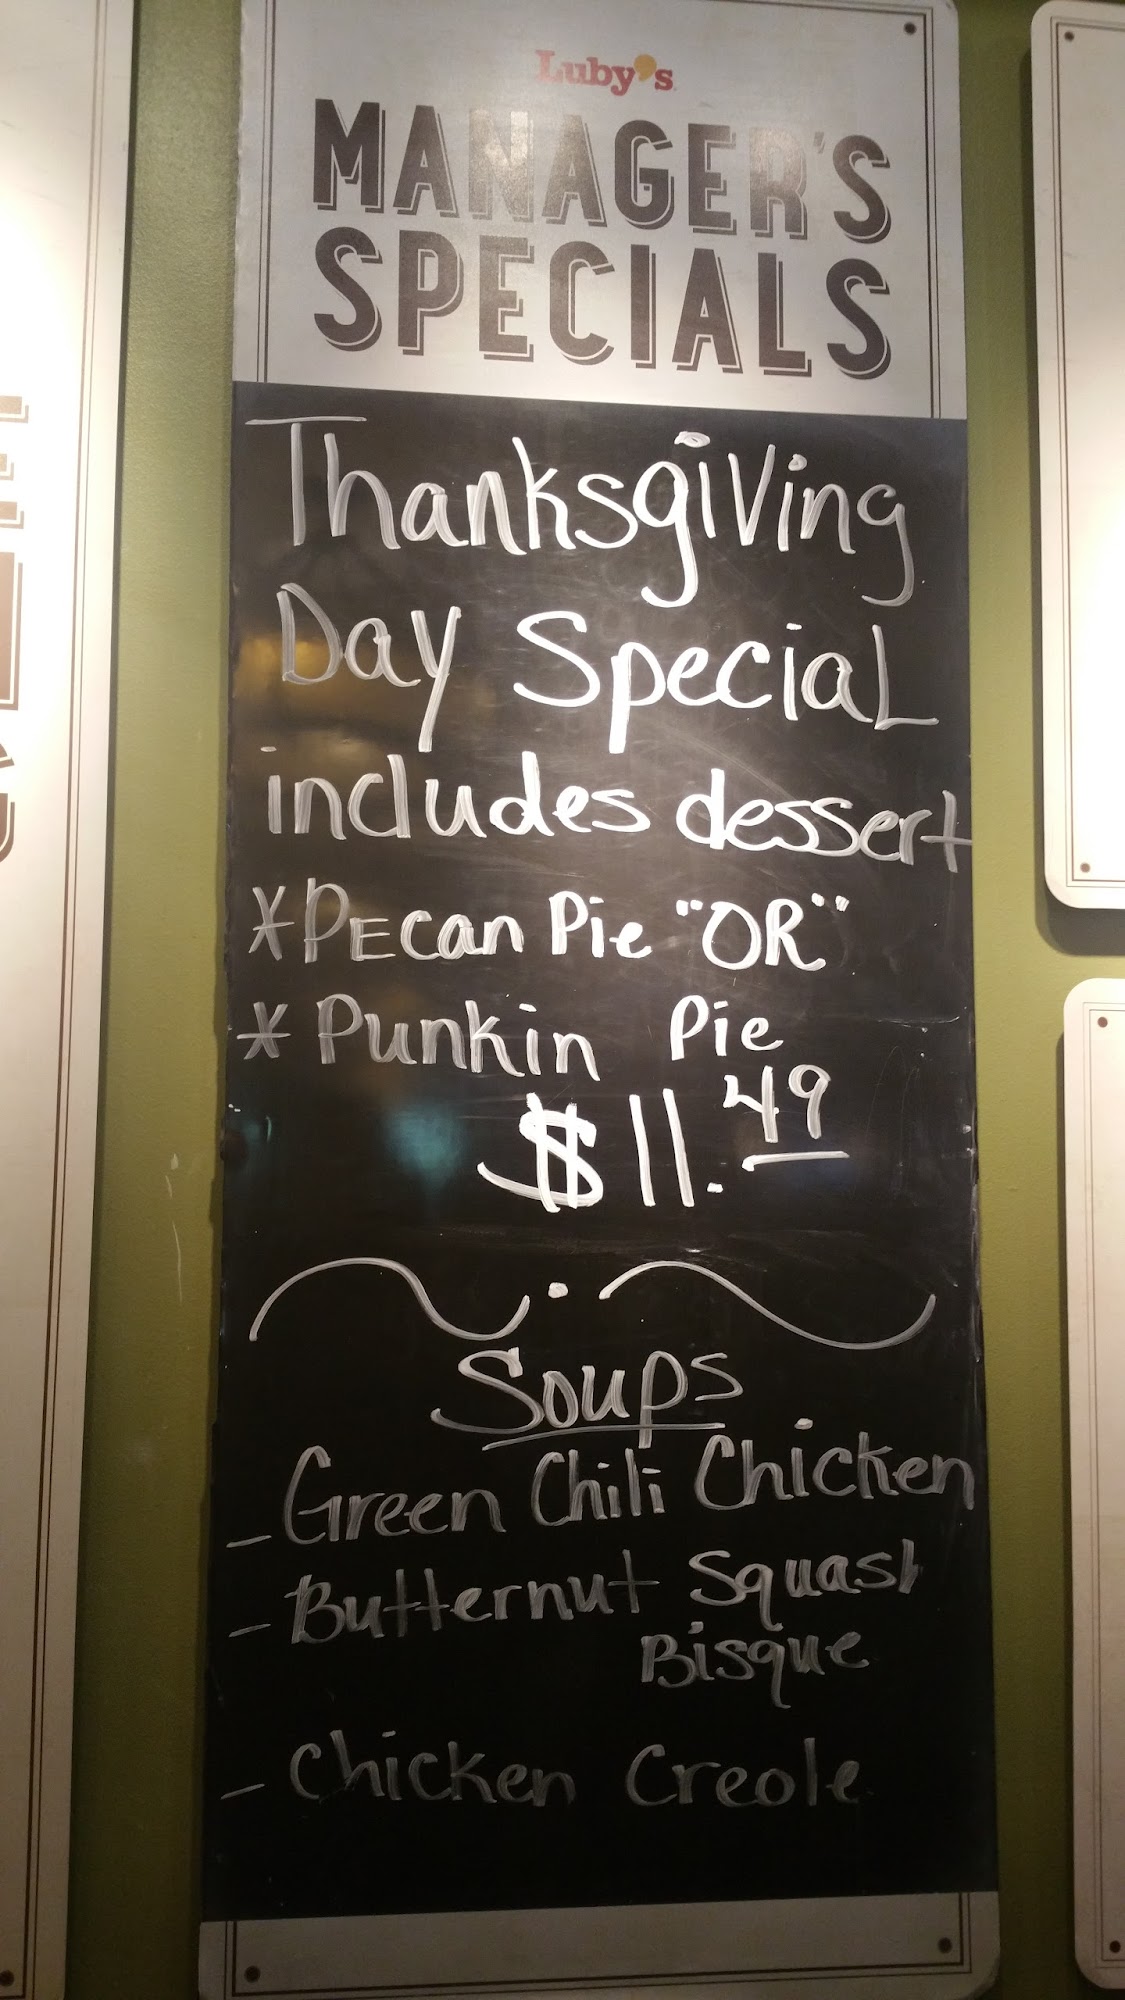 Luby's
MANAGER'S
SPECIALS
Thanksgiving
Day Special
includes dessert
*PECan Pie "OR"
*Punkin Pie
$11.49
Soups
- Green Chili Chicken
- Butternut Squash
Bisque
- Chicken Creole